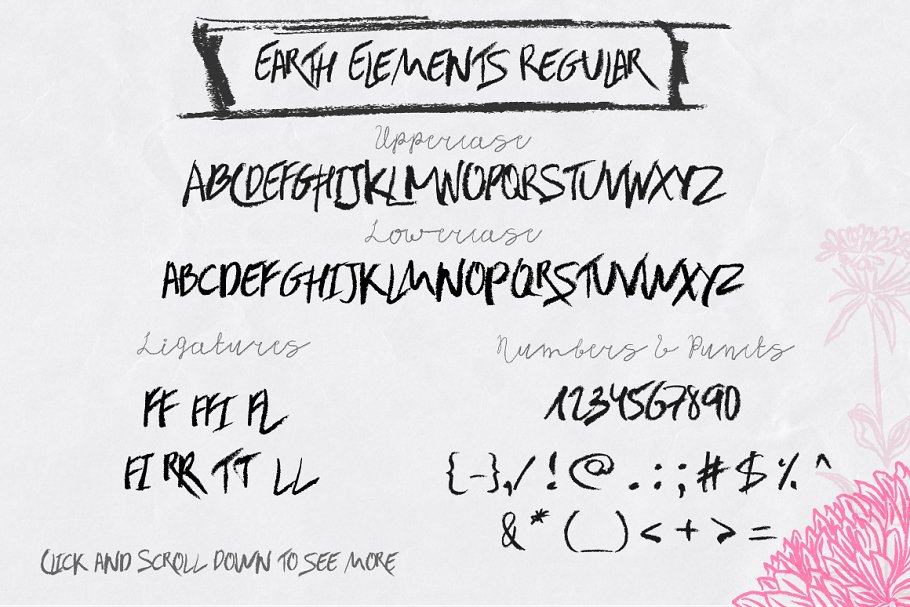 EARTH ELEMENTS REGULAR
Uppercase
ABCDEFGHIJKLMNOPQRSTUVWXYZ
Lowercase
ABCDEFGHIJKLMNOPQRSTUVWXYZ
Ligatures
FF FFI FL
FI RR TT LL
Numbers & Puncts
1234567890
{-},/!@.:;#$%^
&*(_)<+>=
CLICK AND SCROLL DOWN TO SEE MORE